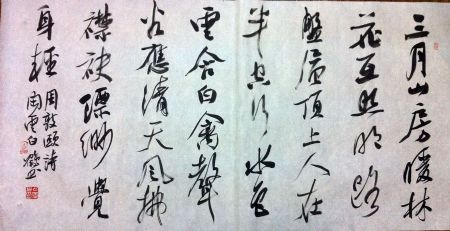 三月山房暖林
花互照明路
盤層頂上人在
半空行水色
雲含白禽聲
谷應清天風拂
襟袂縹緲覺
身輕
周敦頤詩
雲白 書